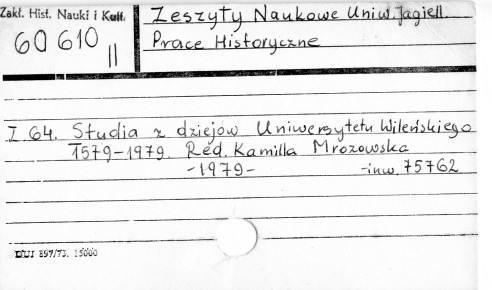 Zakł. Hist. Nauki i Kult.
60 610 II
Zeszyty Naukowe Uniw. Jagiell.
Prace Historyczne
Z 64. Studia z dziejów Uniwersytetu Wileńskiego
1579-1979. Red. Kamilla Mrozowska
-1979- -inw. 75762
DUJ 897/73. 15000